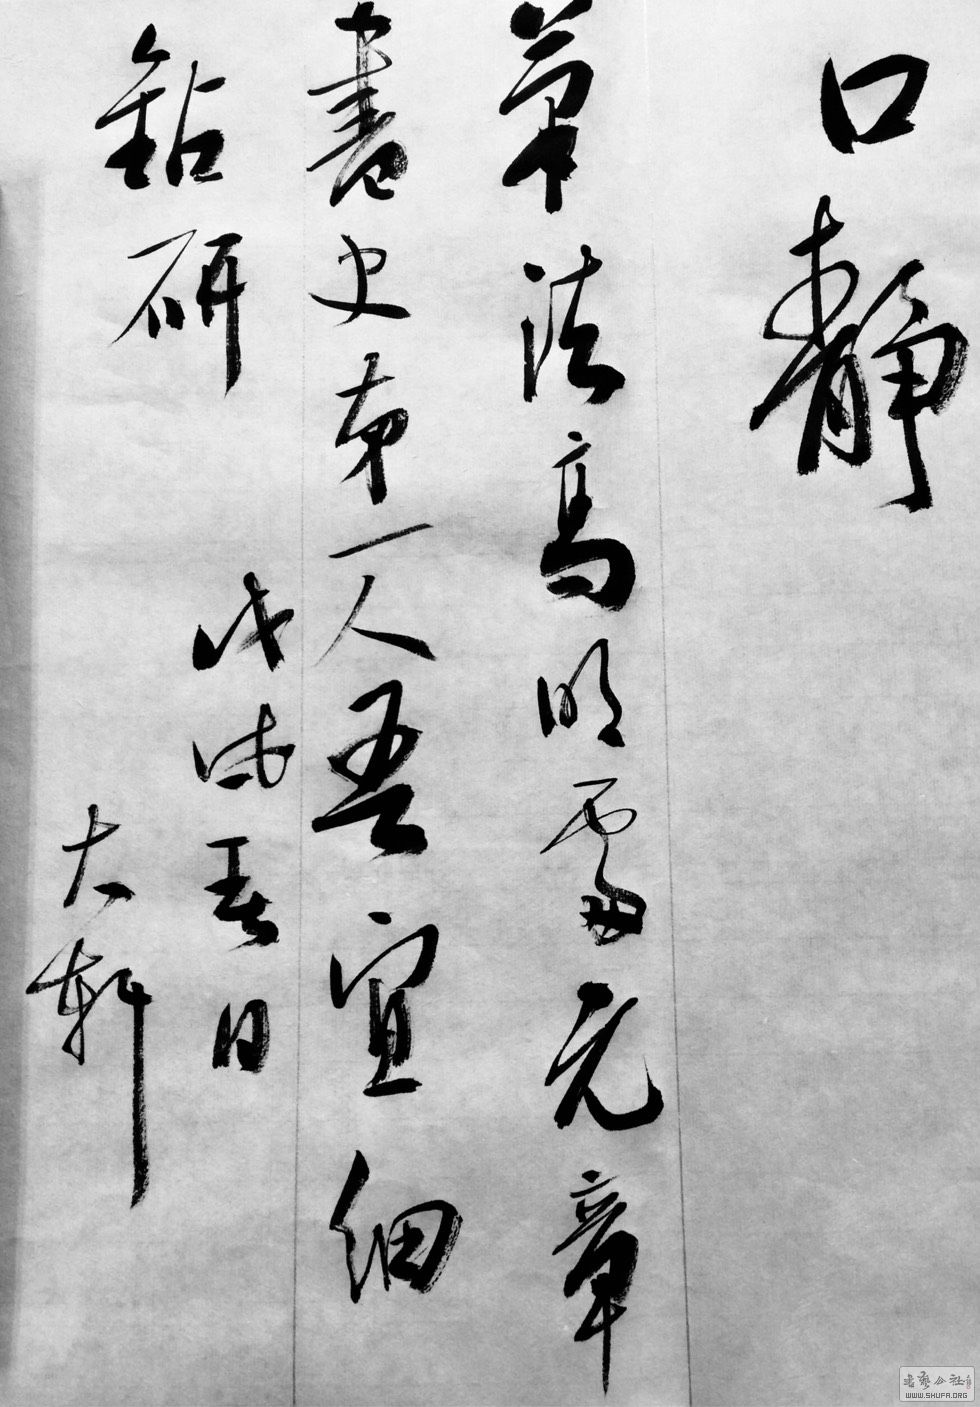 口静
笔法高明处元章
書史第一人吾宜细
鉆研
戊戌春日
大軒
書艺公社
WWW.SHUFA.ORG